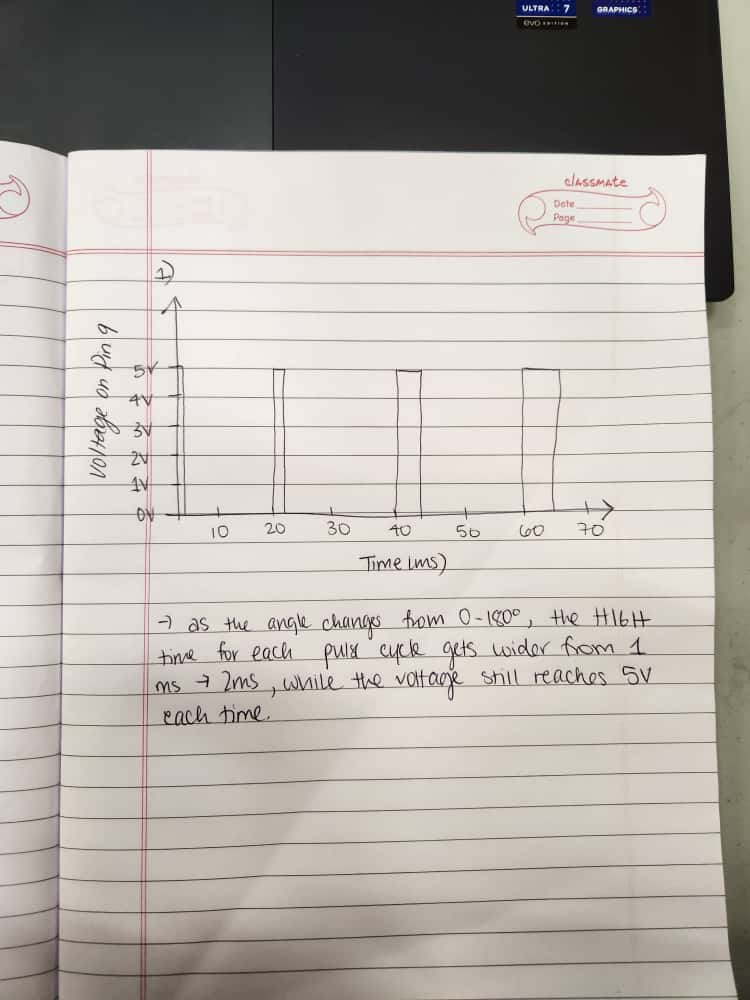 ULTRA 7
evo EDITION
GRAPHICS
classmate
Date
Page
1)
Voltage on Pin 9
5V
4V
3V
2V
1V
0V
10 20 30 40 50 60 70
Time (ms)
→ as the angle changes from 0-180°, the HIGH
time for each pulse cycle gets wider from 1
ms → 2ms, while the voltage still reaches 5V
each time.